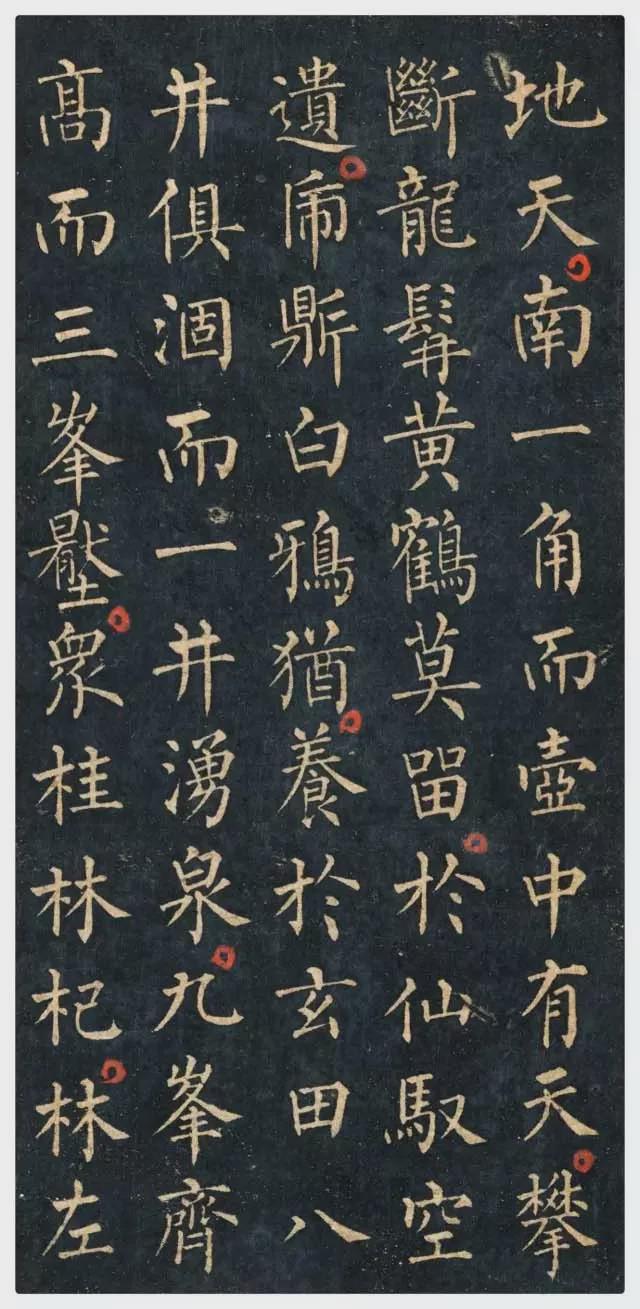 地天南一角而壺中有天攀
斷龍髯黄鶴莫畱於仙馭空
遺乕鼎白鴉猶養於玄田八
井俱涸而一井湧泉九峯齊
髙而三峯壓衆桂林杞林左